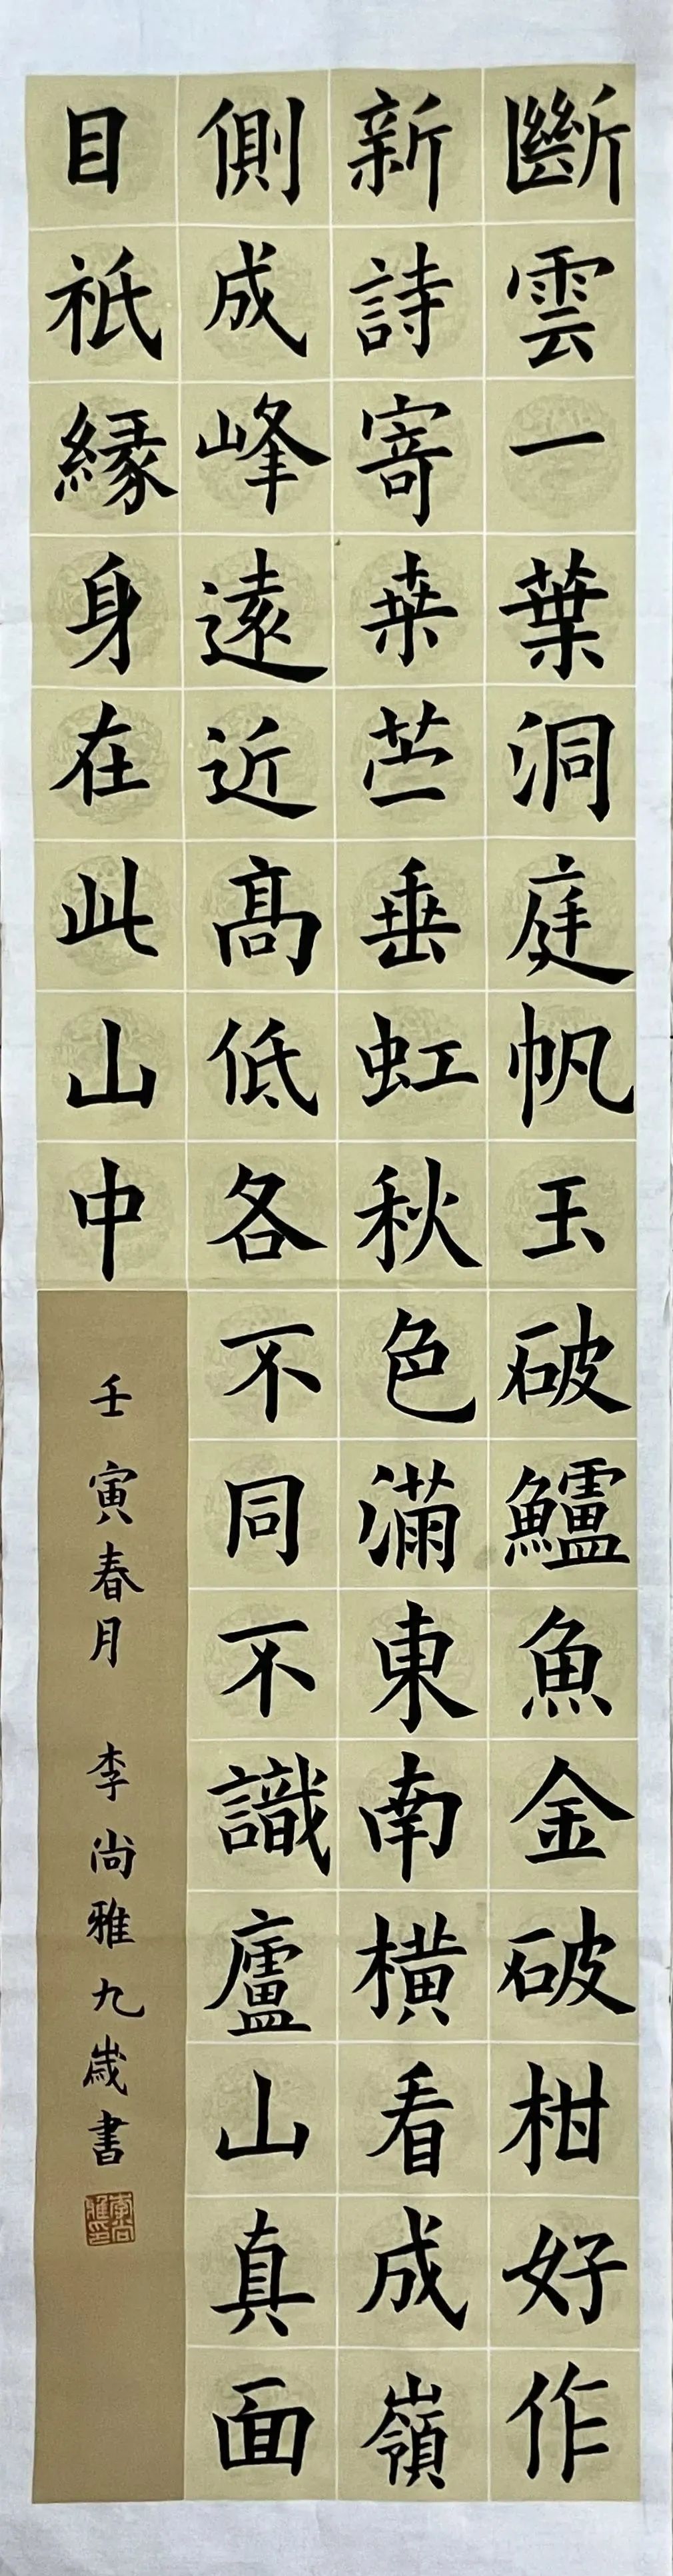 斷雲一葉洞庭帆玉破鱸魚金破柑好作
新詩寄桒苎垂虹秋色滿東南橫看成嶺
側成峰遠近髙低各不同不識廬山真面
目祇緣身在此山中
壬寅春月 李尚雅九歲書
李尚雅印